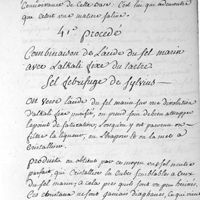 convenance de cette base. C'est lui qui
extrait une matiere saline.
41e procédé
Combinaison de l'acide du sel marin
avec l'alkali fixe du tartre
Sel febrifuge de Sylvius
On verse l'acide du sel marin sur une dissolution
d'alkali fixe purifié, on prend soin d'atteindre
le point de saturation, Lorsqu'on y est parvenu on
filtre la liqueur, on l'evapore et on la met a
cristalliser.
produit on obtient par ce moyen un sel neutre
parfait, qui cristallise en cubes semblables a ceux
du sel marin; a cela près qu'ils sont un peu
Ces cristaux ne sont jamais diaphanes, ce qui